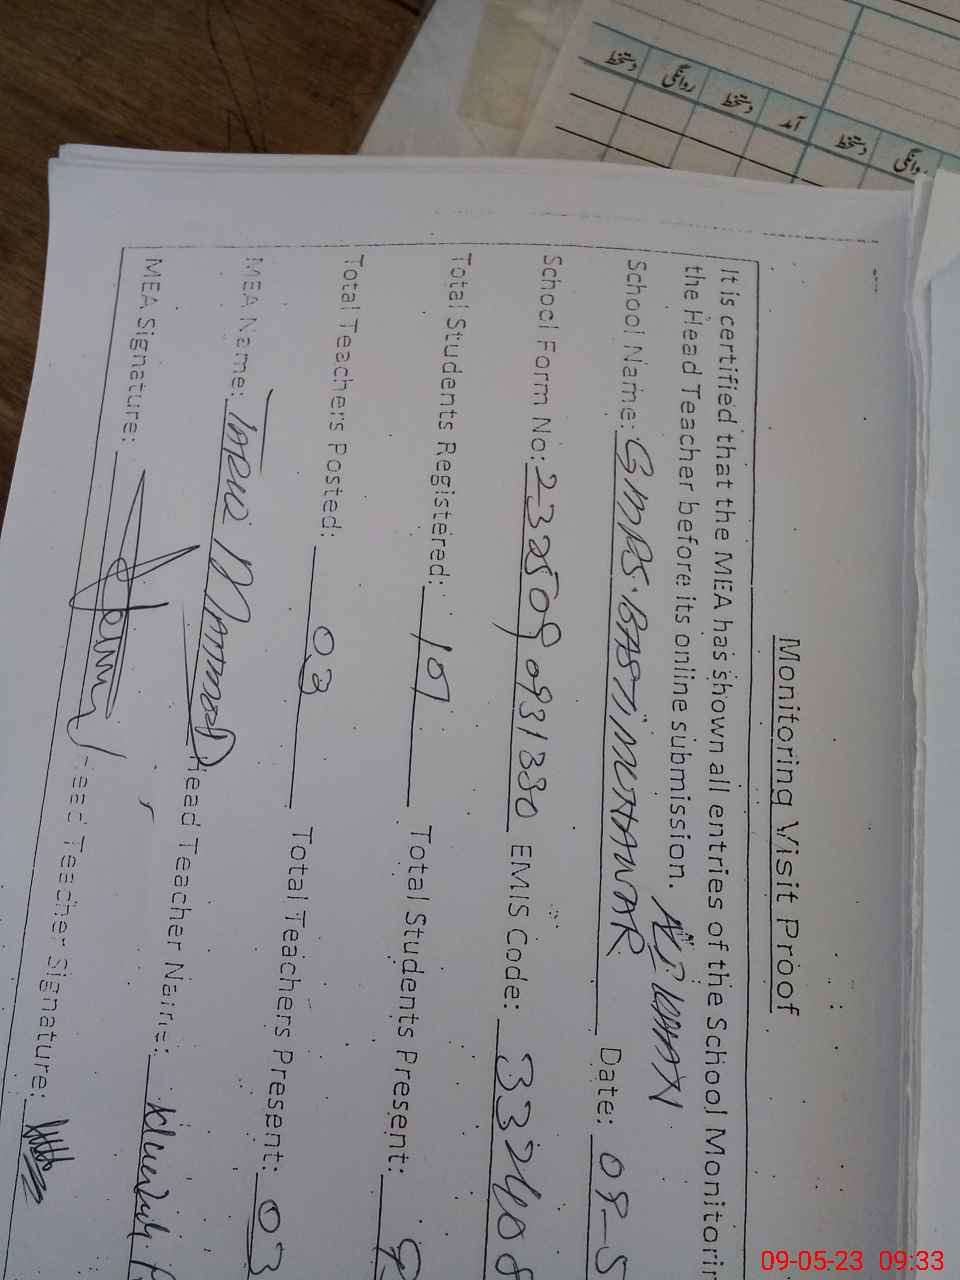 دستخط روانگی دستخط آمد دستخط روانگی
Monitoring Visit Proof
It is certified that the MEA has shown all entries of the School Monitorin
the Head Teacher before its online submission.
School Name: GMPS. BASTI MUHAWAR Date: 09-5
School Form No: EMIS Code: 332408
Total Students Registered: 107 Total Students Present: 9
Total Teachers Posted: 03 Total Teachers Present: 03
MEA Name: Head Teacher Name:
MEA Signature: Head Teacher Signature:
09-05-23 09:33